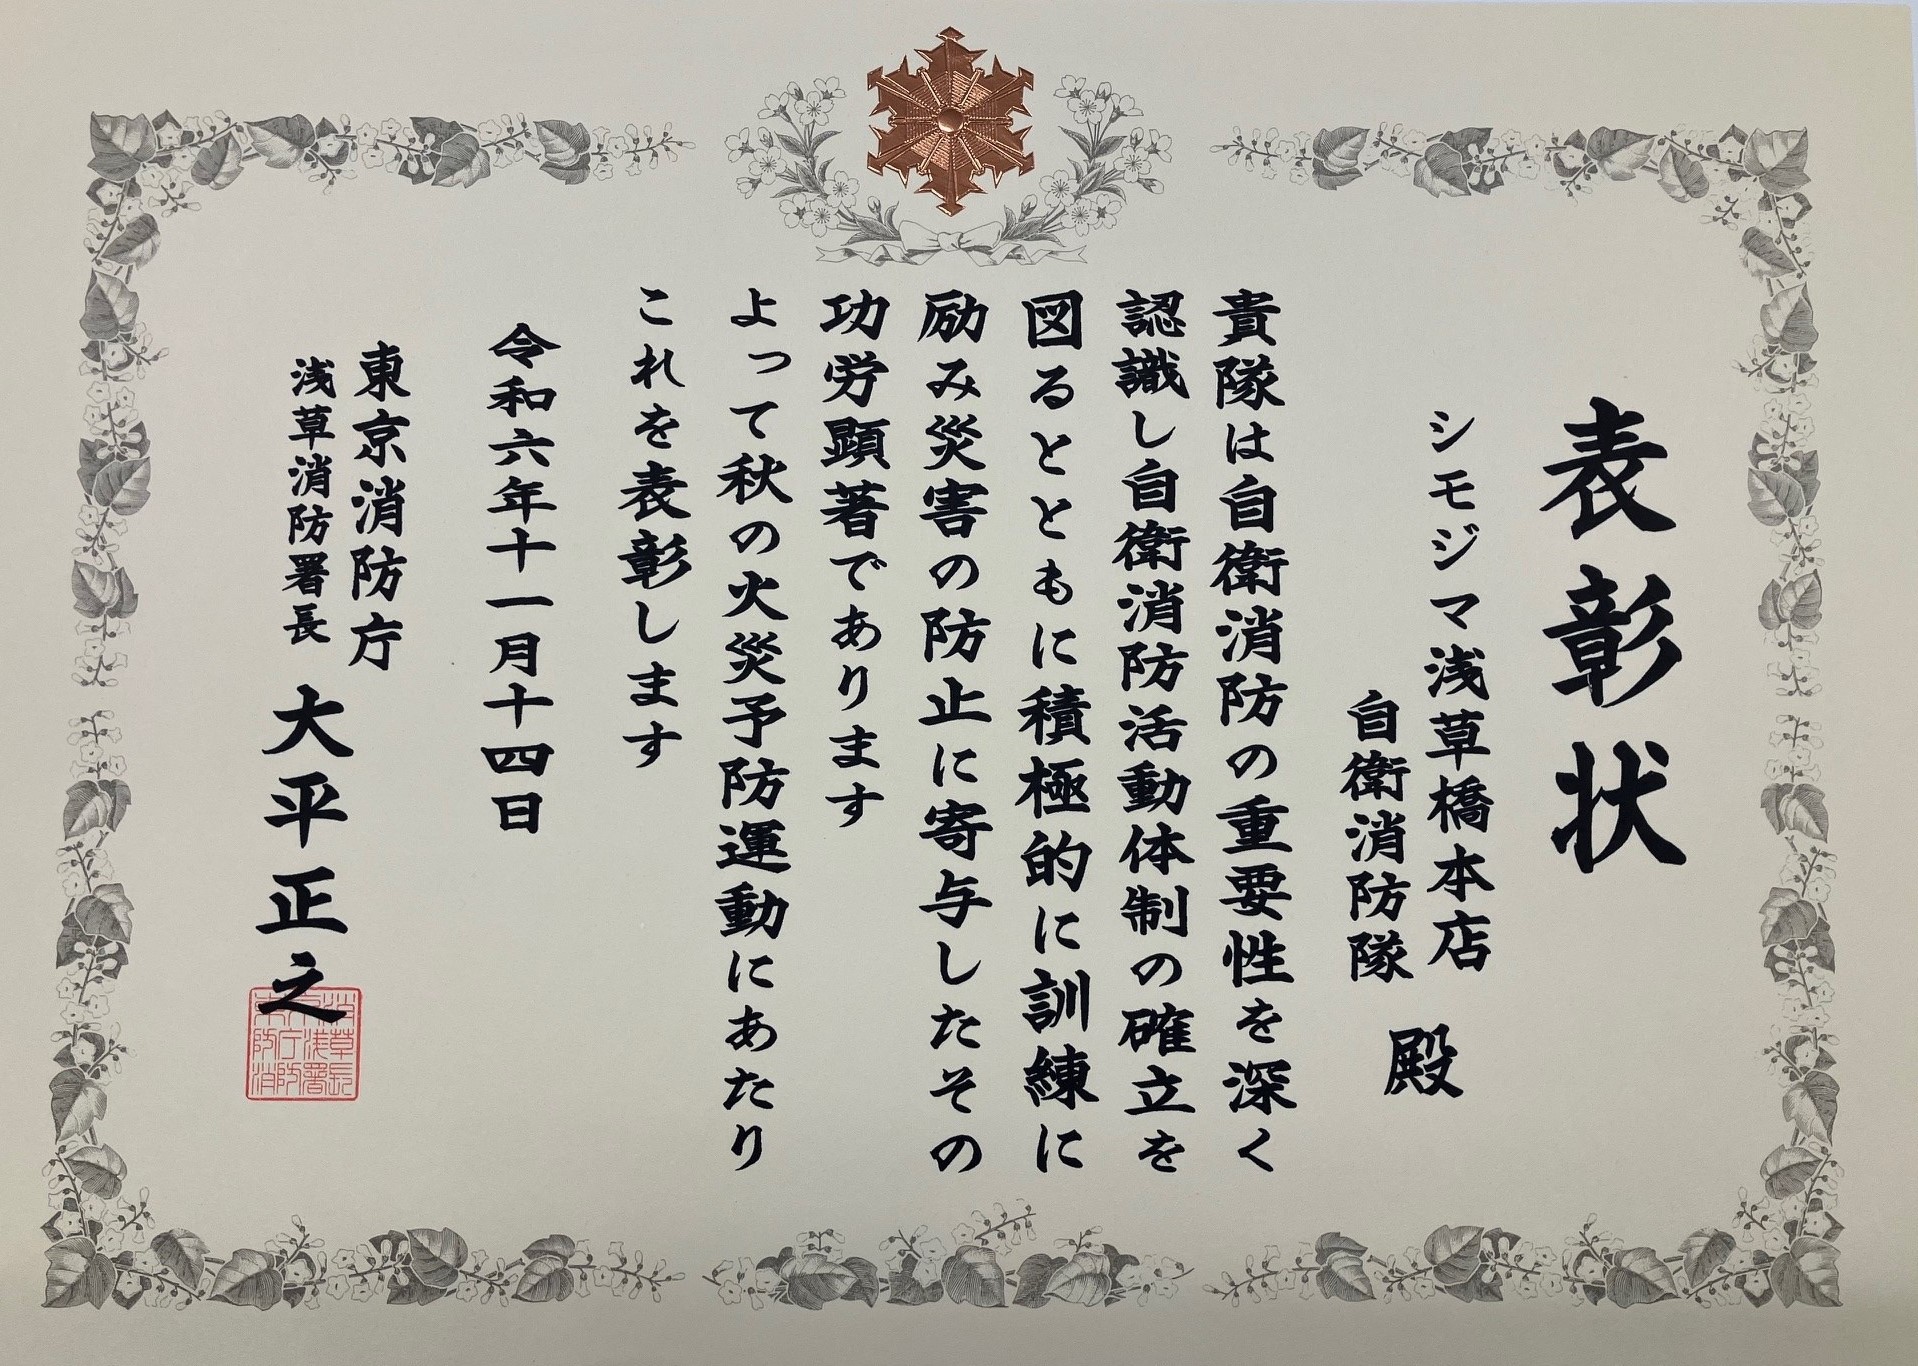 表彰状
シモジマ浅草橋本店
自衛消防隊
殿
貴隊は自衛消防の重要性を深く
認識し自衛消防活動体制の確立を
図るとともに積極的に訓練に
励み災害の防止に寄与したその
功労顕著であります
よって秋の火災予防運動にあたり
これを表彰します
令和六年十一月十四日
東京消防庁
浅草消防署長
大平正之